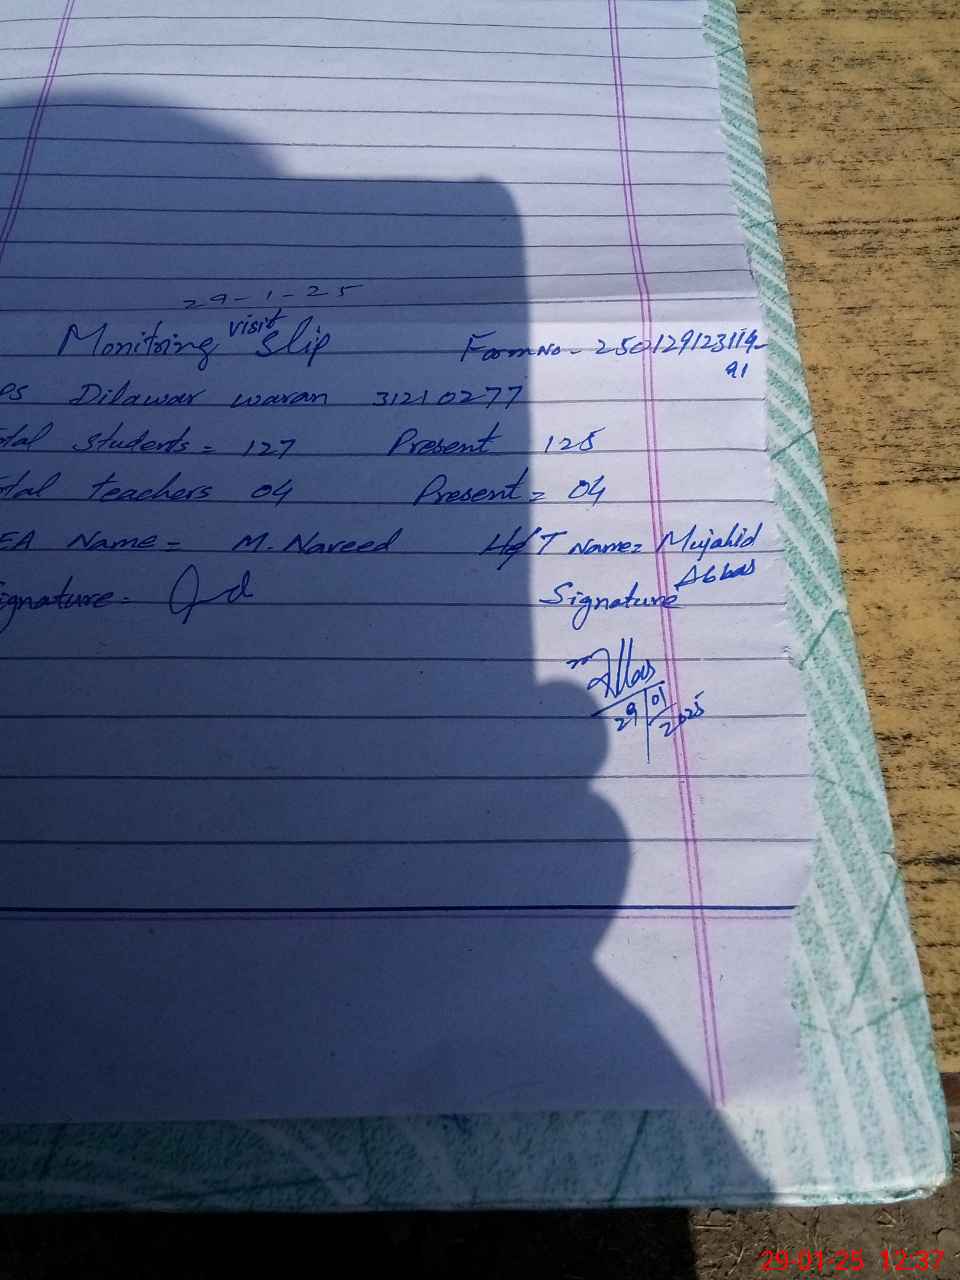 29-1-25
Monitring visit Slip Form No - 250129123114-
91
ps Dilawar waran 31210277
otal students = 127 Present 125
otal teachers 04 Present = 04
EA Name = M. Naveed H/T Name = Mujahid
Abbas
ignature = Signature
29/01/2025
29-01-25 12:37